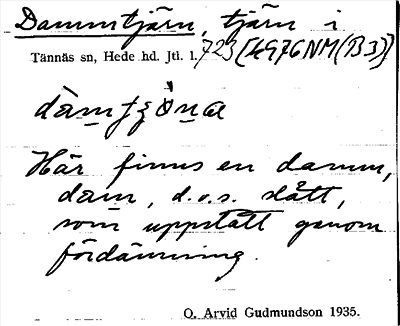 Dammtjärn, tjärn i
Tännäs sn, Hede hd. Jtl. l. 723 [4976NM(B3)]
Här finns en damm,
dam, d.v.s. slått,
som uppstått genom
fördämning.
O. Arvid Gudmundson 1935.